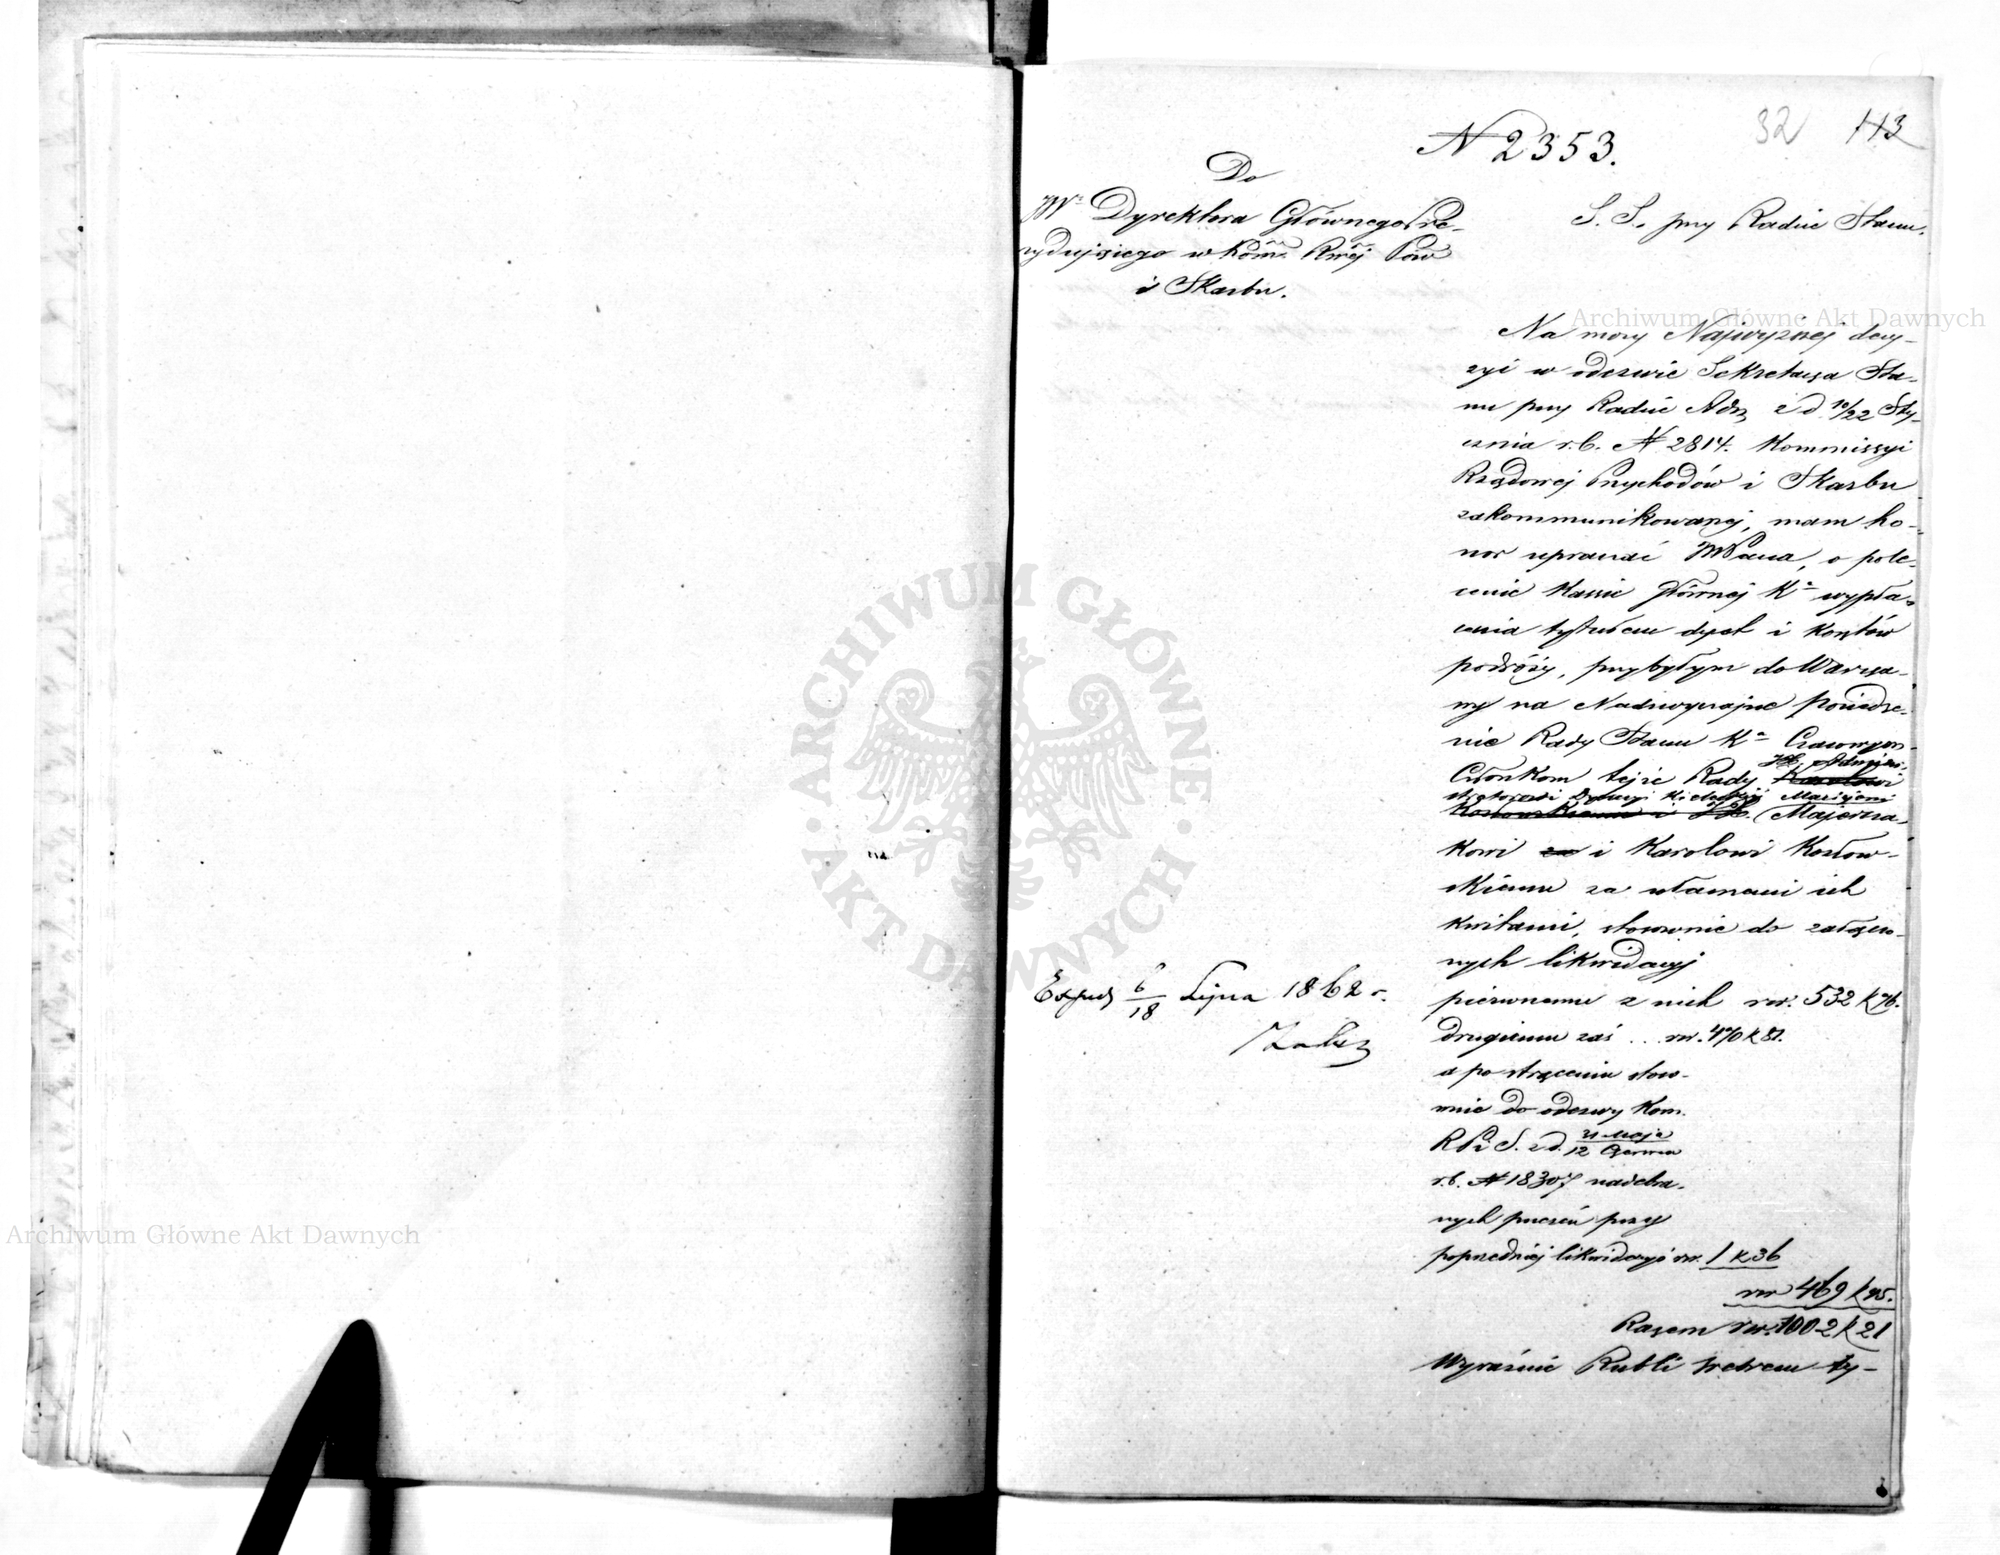 32 113
N 2353.
Do
JWo Dyrektora Głównego Pre-
zydującego w Kom. Rzej Przw
i Skarbu.
S. S. przy Radzie Stanu.
Na mocy Najwyższej decy-
zyi w odezwie Sekretarza Sta-
nu przy Radzie Adm z d. 10/22 Sty-
cznia r.b. N 2814. Kommissyi
Rządowej Przychodów i Skarbu
zakommunikowanej, mam ho-
nor uprzasać JWPana, o pole-
cenie Kassie Głównej Ka wypła-
cenia tytułem dyet i kosztów
podróży, przybyłym do Warsza-
wy na Nadzwyczajne posiedze-
nie Rady Stanu Ka Czasowym
Członkom tejże Rady Karolowi
JX. Admini-
stratorowi Dyecezyi Kieleckiej Maciejowi
Kozłowskiemu i JX. Majerca-
kowi za i Karolowi Kozłow-
skiemu za własnemi ich
kwitami, stosownie do załączo-
nych likwidacyj
pierwszemu z nich rsr. 532 k 26.
drugiemu zaś ... rsr. 470 k 81.
a po strąceniu stoso-
wnie do odezwy Kom.
R P i S. z d. 31 Maja/12 Czerwca
r.b. N 18307 nadebra-
nych przezeń przy
poprzedniej likwidacyi rsr. 1 k 36
rsr 469 k 95.
Razem rsr. 1002 k 21
Wyraźnie Rubli srebrem ty-
Exped 6/18 Lipca 1862 r.
Archiwum Główne Akt Dawnych
ARCHIWUM GŁÓWNE
AKT DAWNYCH
Archiwum Główne Akt Dawnych